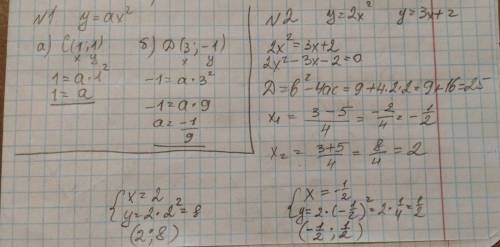 №1 y=ax²
а) C(1;1) б) D(3;-1)
x y x y
1=a·1² -1=a·3²
1=a -1=a·9
a=-1/9
№2 y=2x² y=3x+2
2x²=3x+2
2x²-3x-2=0
D=b²-4ac=9+4·2·2=9+16=25
x₁=(3-5)/4=-2/4=-1/2
x₂=(3+5)/4=8/4=2
{x=2
y=2·2²=8
(2;8)
{x=-1/2
y=2·(-1/2)²=2·1/4=1/2
(-1/2;1/2)